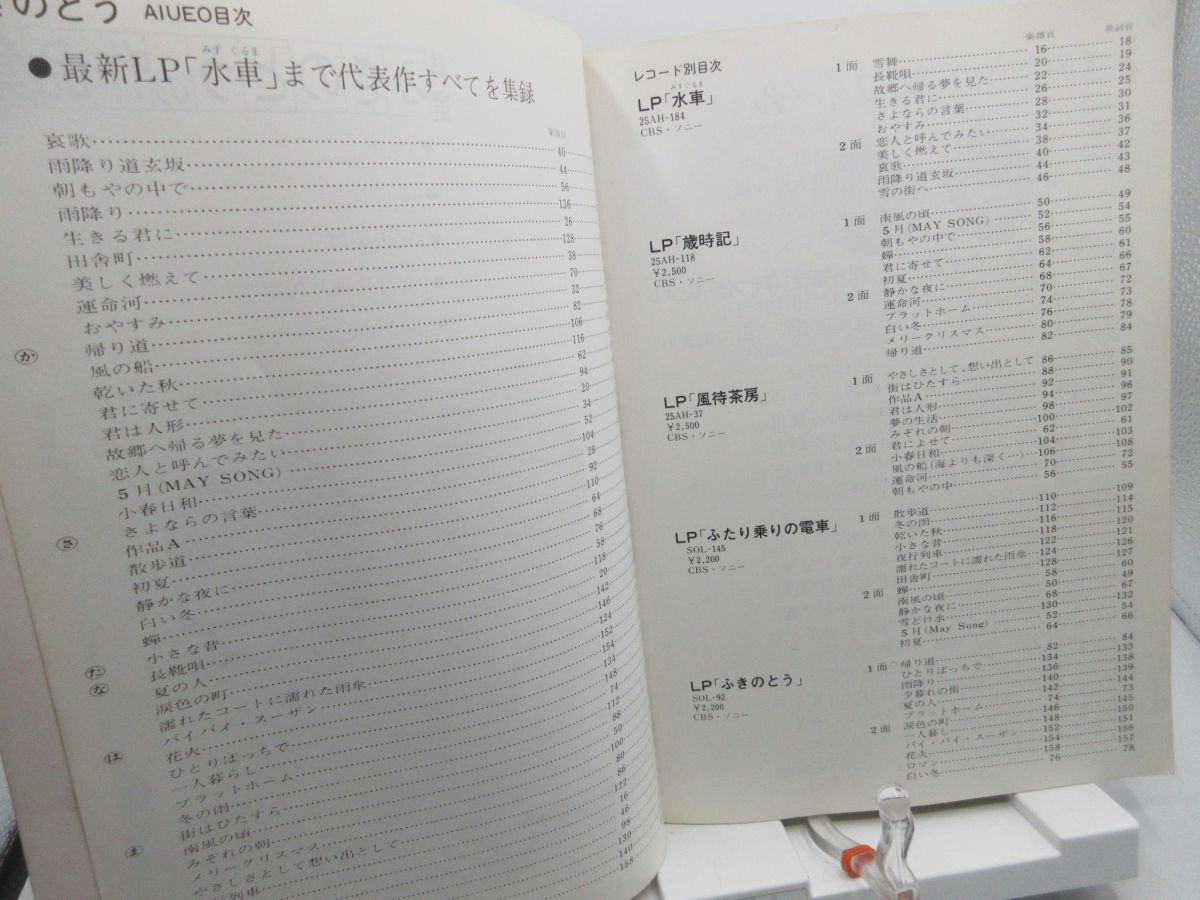 のとう AIUEO目次
みずぐるま
●最新LP「水車」まで代表作すべてを集録
楽譜頁
哀歌……40
雨降り道玄坂……44
朝もやの中で……56
雨降り……136
生きる君に……26
田舎町……128
美しく燃えて……38
運命河……70
おやすみ……32
か 帰り道……82
風の船……106
乾いた秋……116
君に寄せて……62
君は人形……94
故郷へ帰る夢を見た……20
恋人と呼んでみたい……34
5月(MAY SONG)……52
小春日和……104
さよならの言葉……28
さ 作品A……92
散歩道……110
初夏……64
静かな夜に……68
白い冬……76
蟬……58
小さな昔……118
た 長靴唄……20
な 夏の人……142
涙色の町……146
濡れたコートに濡れた雨傘……124
バイバイ・スーザン……152
は 花火……154
ひとりぼっちで……134
一人暮らし……148
プラットホーム……74
冬の雨……112
街はひたすら……88
ま 南風の頃……50
みぞれの朝……100
メリークリスマス……80
やさしさとして想い出として……86
列車……122
16
46
98
130
140
158
楽譜頁 歌詞頁
レコード別目次
LP「水車」
みずぐるま
25AH-184
CBS・ソニー
1面 雪舞……16……18
長靴唄……20……19
故郷へ帰る夢を見た……22……24
生きる君に……26……25
さよならの言葉……28……30
おやすみ……32……31
2面 恋人と呼んでみたい……34……36
美しく燃えて……38……37
哀歌……40……42
雨降り道玄坂……44……43
雪の街へ……46……48
LP「歳時記」
25AH-118
¥2,500
CBS・ソニー
1面 南風の頃……50……49
5月(MAY SONG)……52……54
朝もやの中で……56……55
蟬……58……60
君に寄せて……62……61
初夏……64……66
2面 静かな夜に……68……67
運命河……70……72
プラットホーム……74……73
白い冬……76……78
メリークリスマス……80……79
帰り道……82……84
LP「風待茶房」
25AH-37
¥2,500
CBS・ソニー
1面 やさしさとして、想い出として……86……85
街はひたすら……88……90
作品A……92……91
君は人形……94……96
夢の生活……98……97
みぞれの朝……100……102
2面 君によせて……62……61
小春日和……104……103
風の船(海よりも深く…)……106……108
運命河……70……72
朝もやの中……56……55
LP「ふたり乗りの電車」
SOL-145
¥2,200
CBS・ソニー
1面 散歩道……110……109
冬の雨……112……114
乾いた秋……116……115
小さな昔……118……120
夜行列車……122……121
濡れたコートに濡れた雨傘……124……126
田舎町……128……127
2面 蟬……58……60
南風の頃……50……49
静かな夜に……68……67
雪どけ水……130……132
5月(May Song)……52……54
初夏……64……66
LP「ふきのとう」
SOL-92
¥2,200
CBS・ソニー
1面 帰り道……82……84
ひとりぼっちで……134……133
雨降り……136……138
夕暮れの街……140……139
夏の人……142……144
プラットホーム……74……73
2面 涙色の町……146……145
一人暮し……148……150
バイ・バイ・スーザン……152……151
花火……154……156
ロマン……158……157
白い冬……76……78